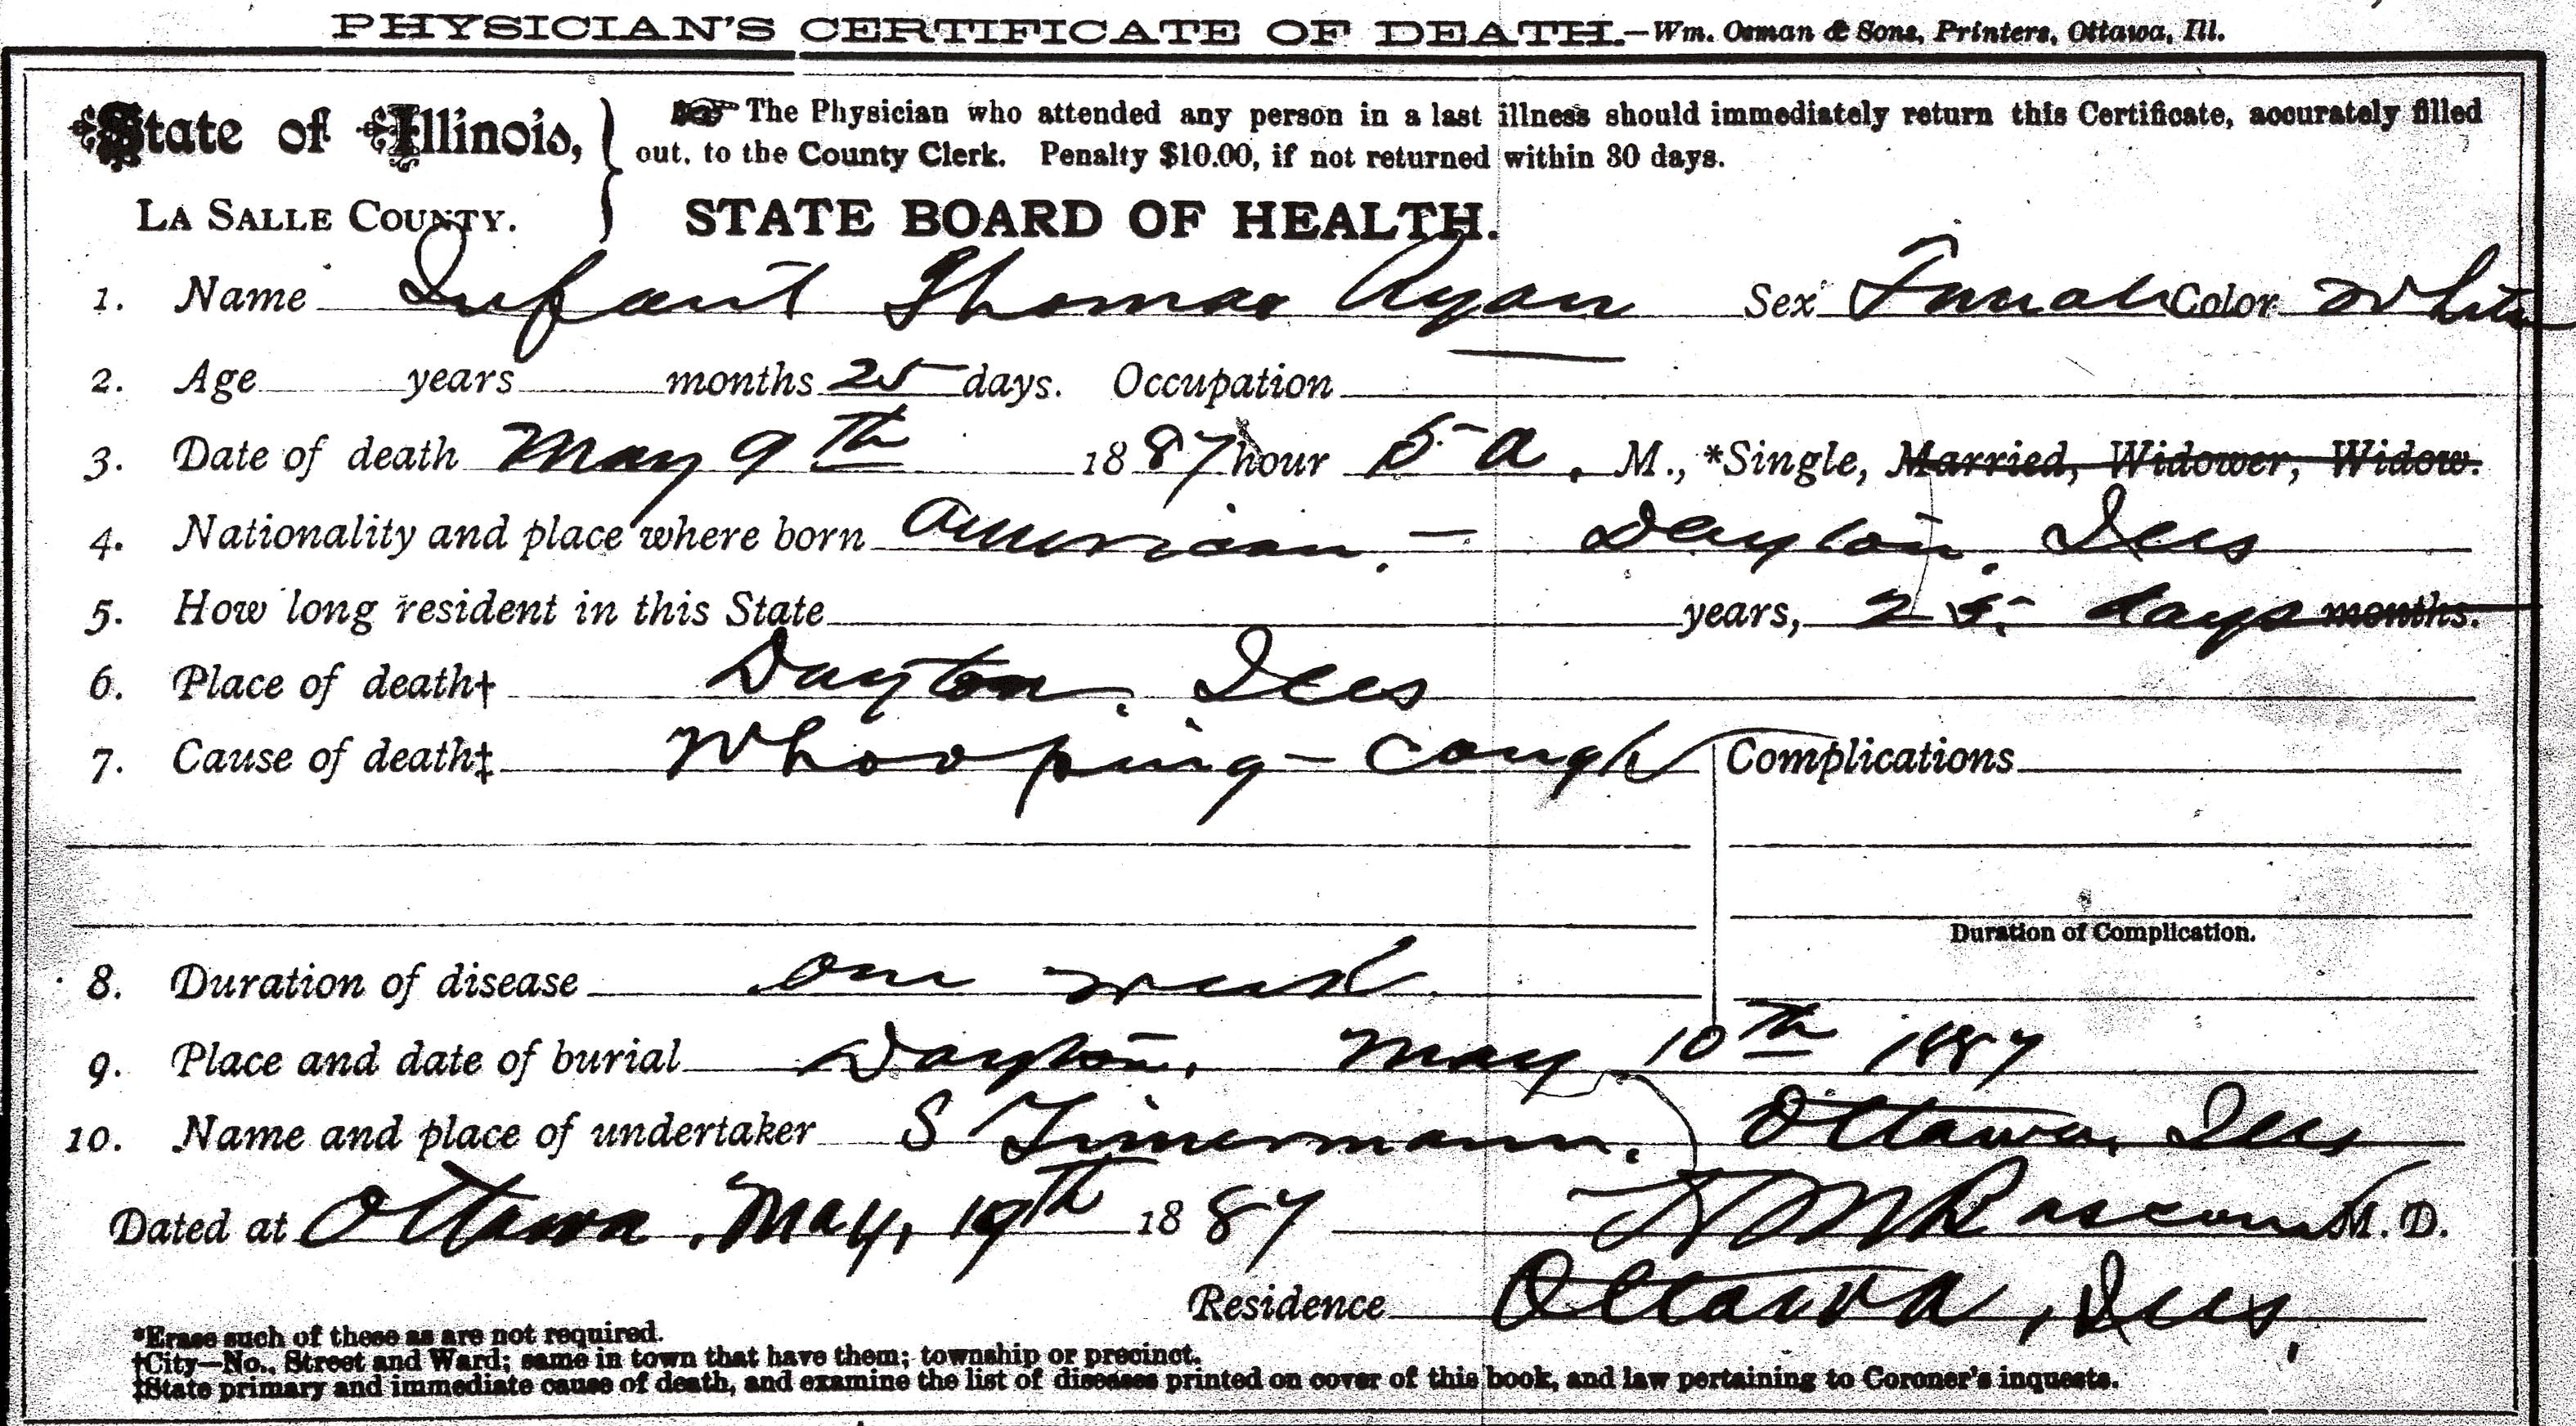 PHYSICIAN'S CERTIFICATE OF DEATH.—Wm. Osman & Sons, Printers, Ottawa, Ill.
State of Illinois,
LA SALLE COUNTY.
The Physician who attended any person in a last illness should immediately return this Certificate, accurately filled
out, to the County Clerk. Penalty $10.00, if not returned within 30 days.
STATE BOARD OF HEALTH.
1. Name Infant Thomas Ryan Sex Female Color White
2. Age years months 25 days. Occupation
3. Date of death May 9th 1887 hour 5 a. M., *Single, Married, Widower, Widow.
4. Nationality and place where born American. — Dayton, Ills
5. How long resident in this State years, 25 days months.
6. Place of death† Dayton, Ills
7. Cause of death‡ Whooping-cough Complications
Duration of Complication.
8. Duration of disease One week
9. Place and date of burial Dayton, May 10th 1887
10. Name and place of undertaker S Zimermann. Ottawa, Ills
Dated at Ottawa, May, 19th 1887 M. D.
Residence Ottawa, Ills,
*Erase such of these as are not required.
†City—No., Street and Ward; same in town that have them; township or precinct.
‡State primary and immediate cause of death, and examine the list of diseases printed on cover of this book, and law pertaining to Coroner's inquests.